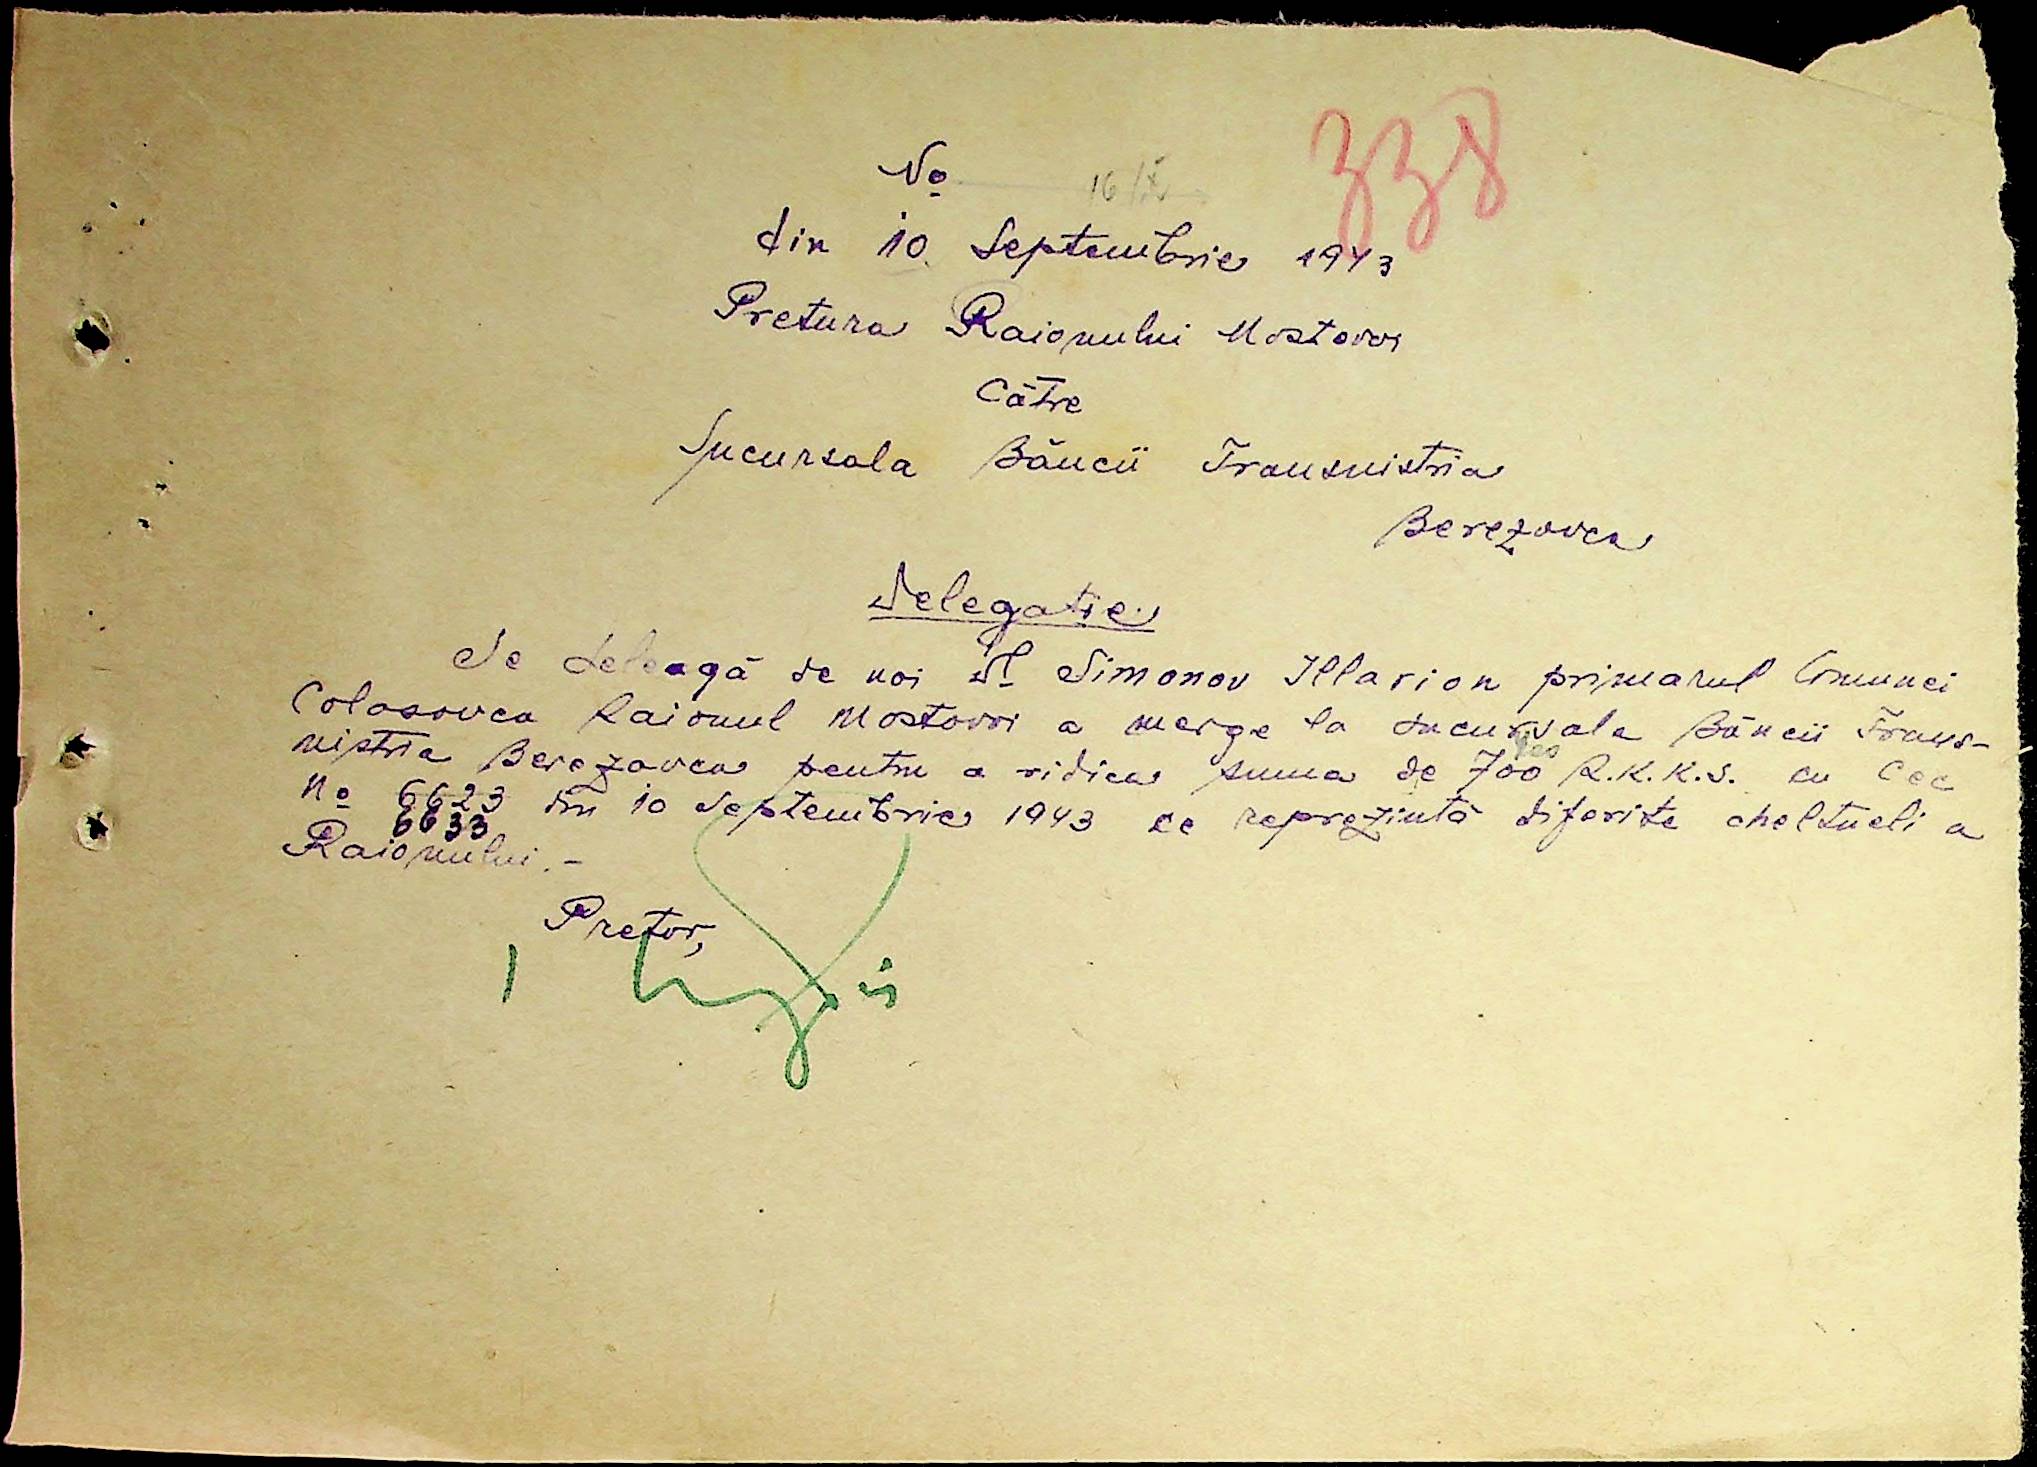 338
No 16/IX
din 10 Septembrie 1943
Pretura Raionului Mostovoi
Către
Sucursala Băncii Transnistria
Berezovca
Delegatie
Se deleagă de noi Dl. Simonov Illarion primarul Comunei
Colosovca Raionul Mostovoi a merge la Sucursala Băncii Trans-
nistria Berezovca pentru a ridica suma de 700 R.K.K.S. cu Cec
No 6623 din 10 Septembrie 1943 ce reprezintă diferite cheltueli a
6633
Raionului.-
Pretor,